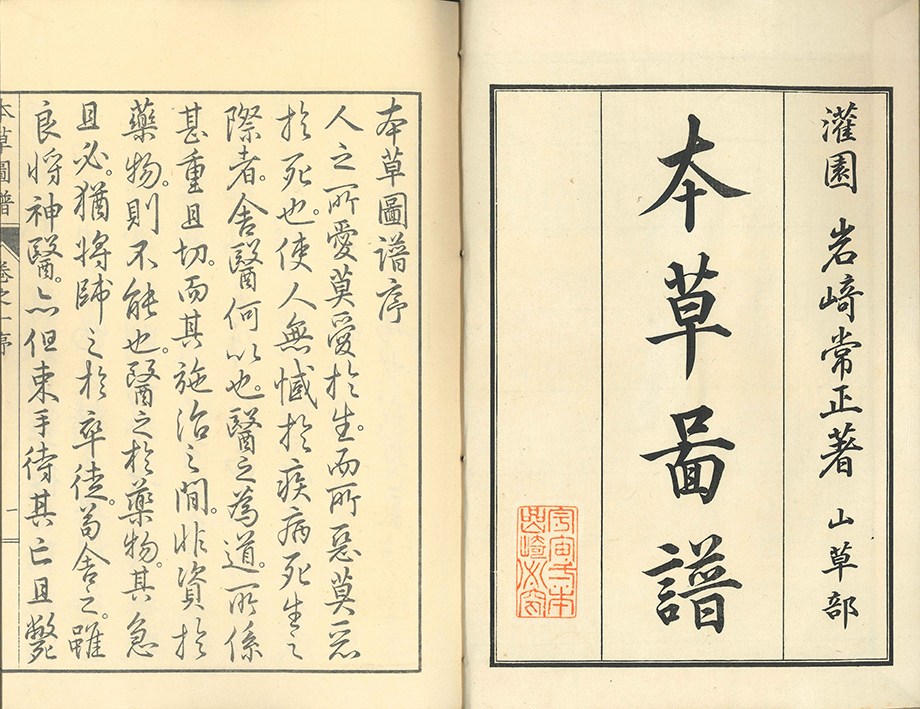 灌園 岩﨑常正著 山草部
本草啚譜
本草圖譜序
人之所愛莫愛於生。而所惡莫惡
於死也。使人無憾於疾病死生之
際者。舍醫何以也。醫之為道。所係
甚重且切。而其施治之間。非資於
藥物。則不能也。醫之於藥物。其急
且必。猶將帥之於卒徒。苟舍之。雖
良將神醫。亦但束手待其亡且斃
本草圖譜 卷之一序 一